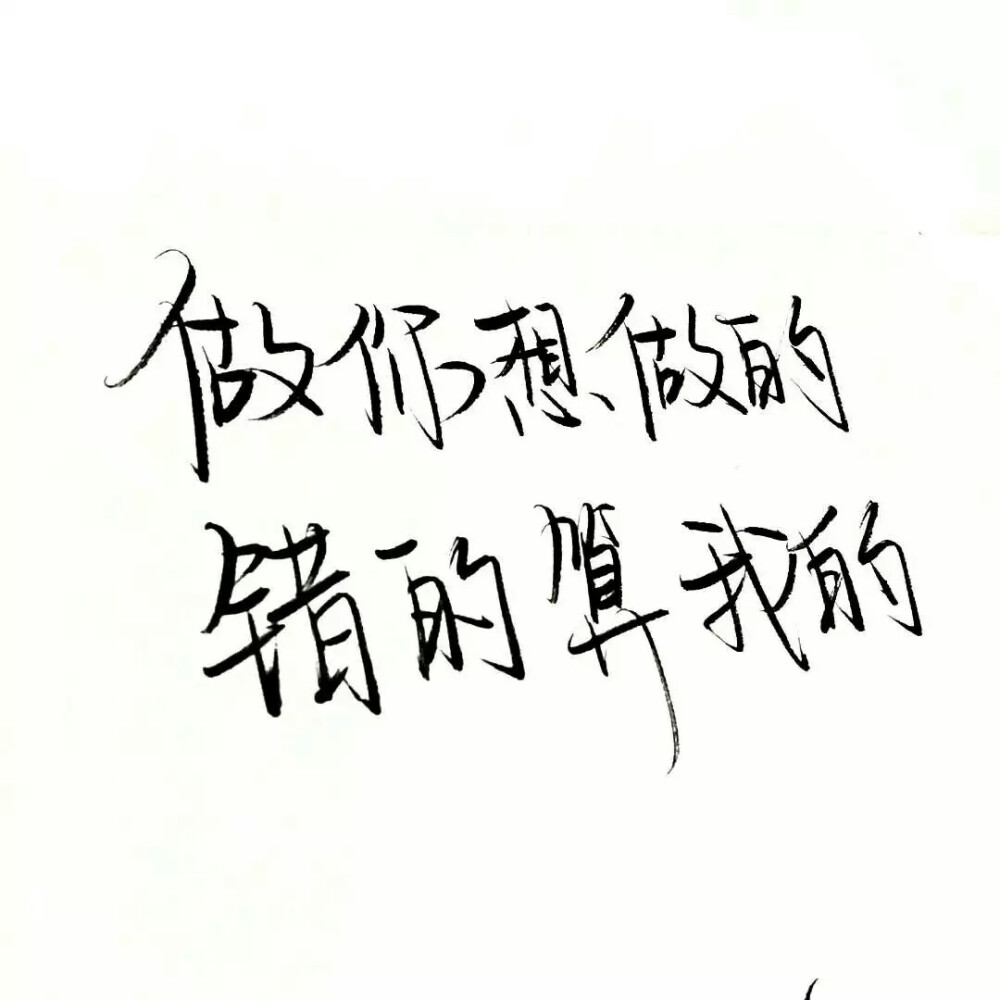 做你想做的
错的算我的